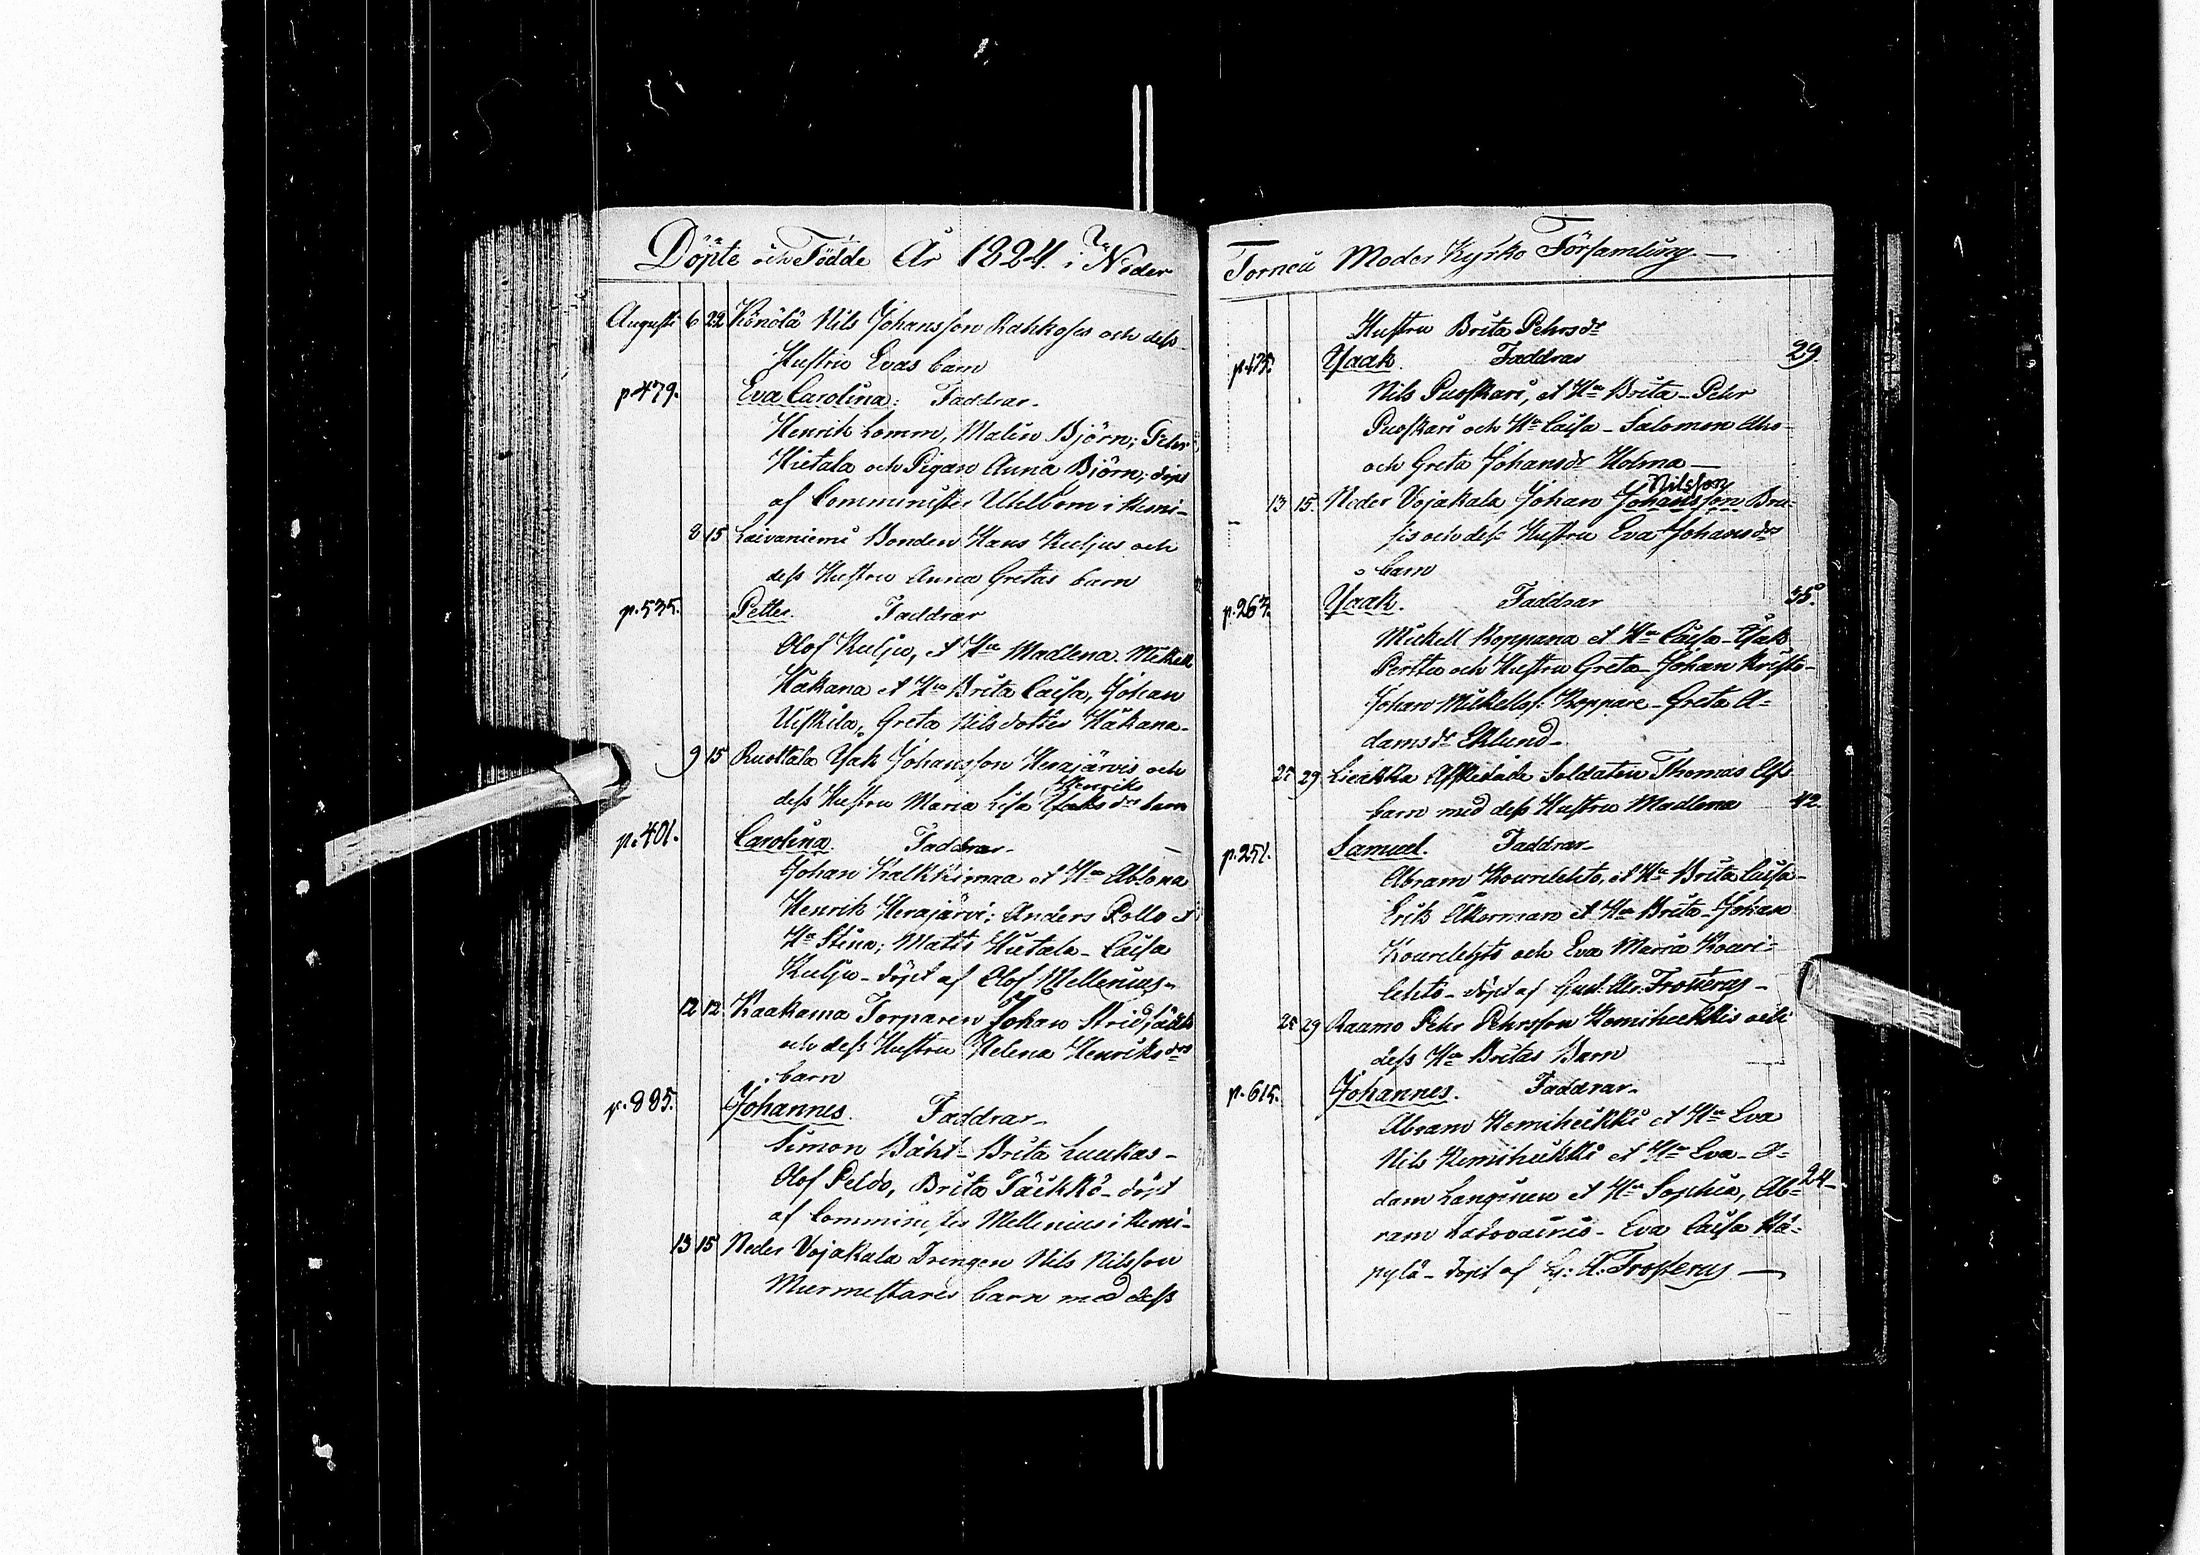 Döpte och Födde År 1824. i Neder
Augusti 6 22 Könölä Nils Johansson Rahkoses och dess
Hustru Evas barn
p 479. Eva Carolina: Faddrar
Henrik Lomm, Malin Björn; Pehr
Hietala och Pigan Anna Björn; döpt
af Comminister Uhlbom i Kemi
8 15 Laivaniemi Bonden Hans Kuljus och
dess Hustru Anna Gretas barn
p. 535. Petter. Faddrar
Olof Kulju, et Hu Madlena. Mickell
Håkana et Hu Brita Caisa, Johan
Uiskila, Greta Nils dotter Håkana
9 15 Ruottala Isak Johansson Herajärvis och
Henriks
dess Hustru Maria Lisa Isaks drs barn
p. 401. Carolina. Faddrar
Johan Kalkkimaa et Hu Ablona
Henrik Herajärvi; Anders Rollo et
Hu Stina; Matts Hietala Caisa
Kulju döpt af Olof Mellenius
12 12 Kaakama Torparen Johan
och dess Hustru Helena Henriks drs
barn
p. 885. Johannes. Faddrar
Simon Båht Brita Luukas
Olof Peldo, Brita döpt
af Comminister Mellenius i Kemi
13 15 Neder Vojakala Drengen Nils Nilsson
Murmestares barn med dess
Torneå Moder Kyrko Församling
Hustru Brita Pehrsdr
Isaak Faddrar 29
Nils Puoskari, et Hu Brita Pehr
Puoskari och Hu Caisa Salomon Aho
och Greta Johansdr Holma
Nilsson
13 15. Neder Vojakala Johan Johansson Bru=
sis och dess Hustru Eva Johansdrs
barn
p. 263. Isaak. Faddrar 35.
Mickell Koppana et Hu Caisa Isak
Perttu och Hustru Greta Johan Kristo
Johan Mickellss: Koppare Greta A=
damsdr Eklund
25 29 Liakka Afskedade Soldaten Thomas
barn med dess Hustru Madlena 42.
p. 251. Samuel. Faddrar
Abram Kourilehto, et Hu Brita Caisa
Erik Åkerman et Hu Brita Johan
Kourilehto och Eva Maria Kouri=
lehto döpt af Gust. Ad. Frosterus
25 29 Raumo Pehr Pehrsson Kemiheikkis och
dess Hu Britas Barn
p. 615. Johannes. Faddrar
Abram Kemiheikki et Hu Eva
Nils Kemiheikki et Hu Eva A=
dam Langinen et Hu Sophia, Ab= 24
ram Eva Caisa Kä=
pylä döpt af G: A: Frosterus